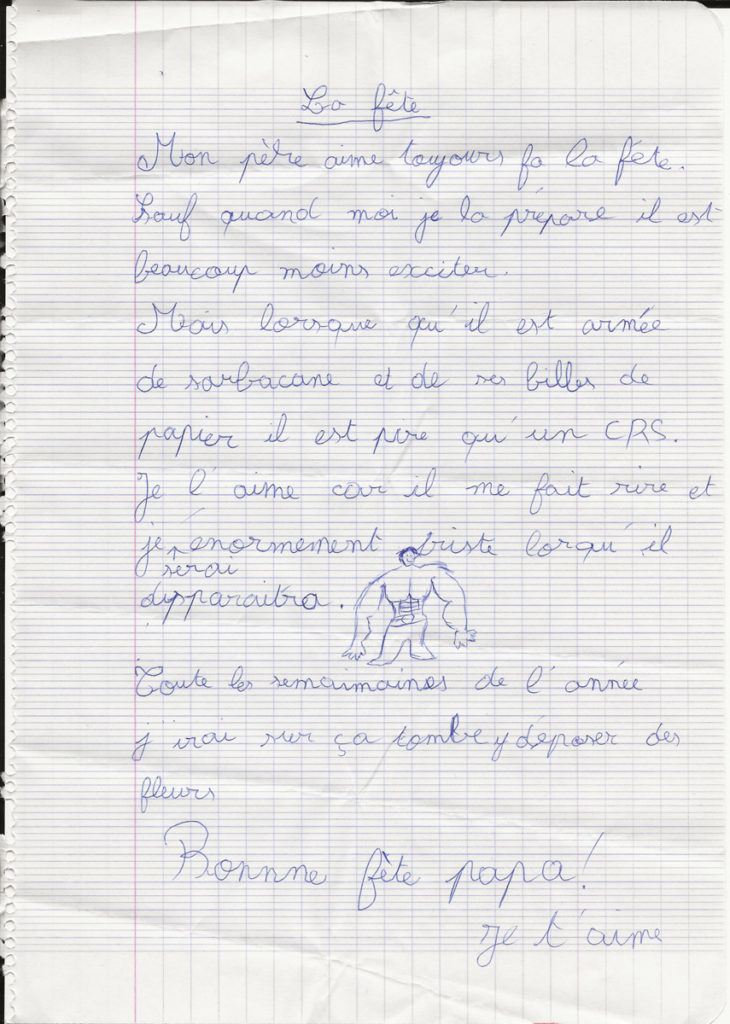 La fête
Mon père aime toujours fa la fête.
Sauf quand moi je la prépare il est
beaucoup moins exciter.
Mais lorsque qu'il est armée
de sarbacane et de ses billes de
papier il est pire qu'un CRS.
Je l'aime car il me fait rire et
je serai énormement triste lorqu'il
dispparaitra.
Toute les semaimaines de l'année
j'irai sur ça tombe y déposer des
fleurs
Bonnne fête papa !
Je t'aime